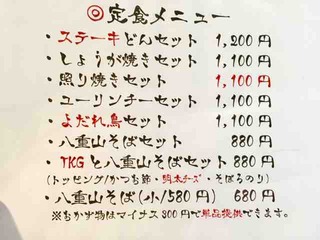 ◎定食メニュー
・ステーキどんセット 1,200円
・しょうが焼きセット 1,100円
・照り焼きセット 1,100円
・ユーリンチーセット 1,100円
・よだれ鳥セット 1,100円
・八重山そばセット 880円
・TKGと八重山そばセット 880円
(トッピング/かつお節・明太チーズ・そばろのり)
・八重山そば(小/580円) 680円
※おかず物はマイナス300円で単品提供できます。